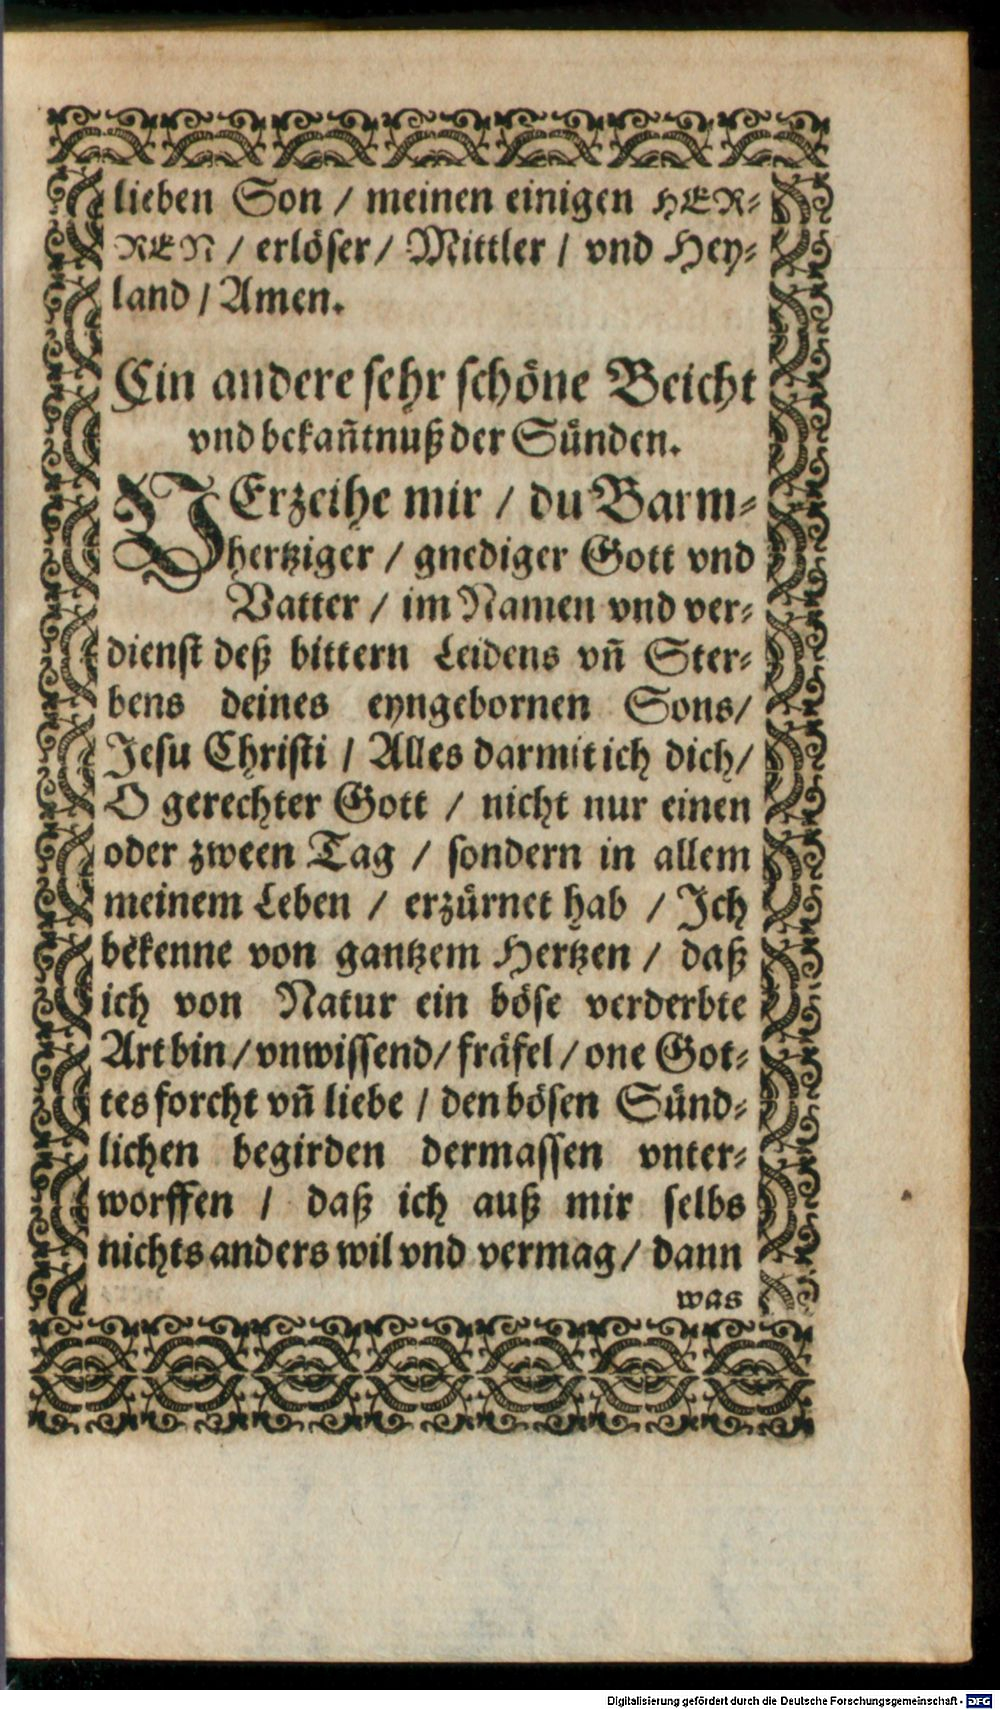 lieben Son / meinen einigen HER⸗
REN / erlöser / Mittler / vnd Hey⸗
land / Amen.
Ein andere sehr schöne Beicht
vnd bekañtnuß der Sünden.
VErzeihe mir / du Barm⸗
hertziger / gnediger Gott vnd
Vatter / im Namen vnd ver⸗
dienst deß bittern Leidens vñ Ster⸗
bens deines eyngebornen Sons /
Jesu Christi / Alles darmit ich dich /
O gerechter Gott / nicht nur einen
oder zween Tag / sondern in allem
meinem Leben / erzürnet hab / Jch
bekenne von gantzem Hertzen / daß
ich von Natur ein böse verderbte
Art bin / vnwissend / fräfel / one Got⸗
tes forcht vñ liebe / den bösen Sünd⸗
lichen begirden dermassen vnter⸗
worffen / daß ich auß mir selbs
nichts anders wil vnd vermag / dann
was
Digitalisierung gefördert durch die Deutsche Forschungsgemeinschaft - DFG